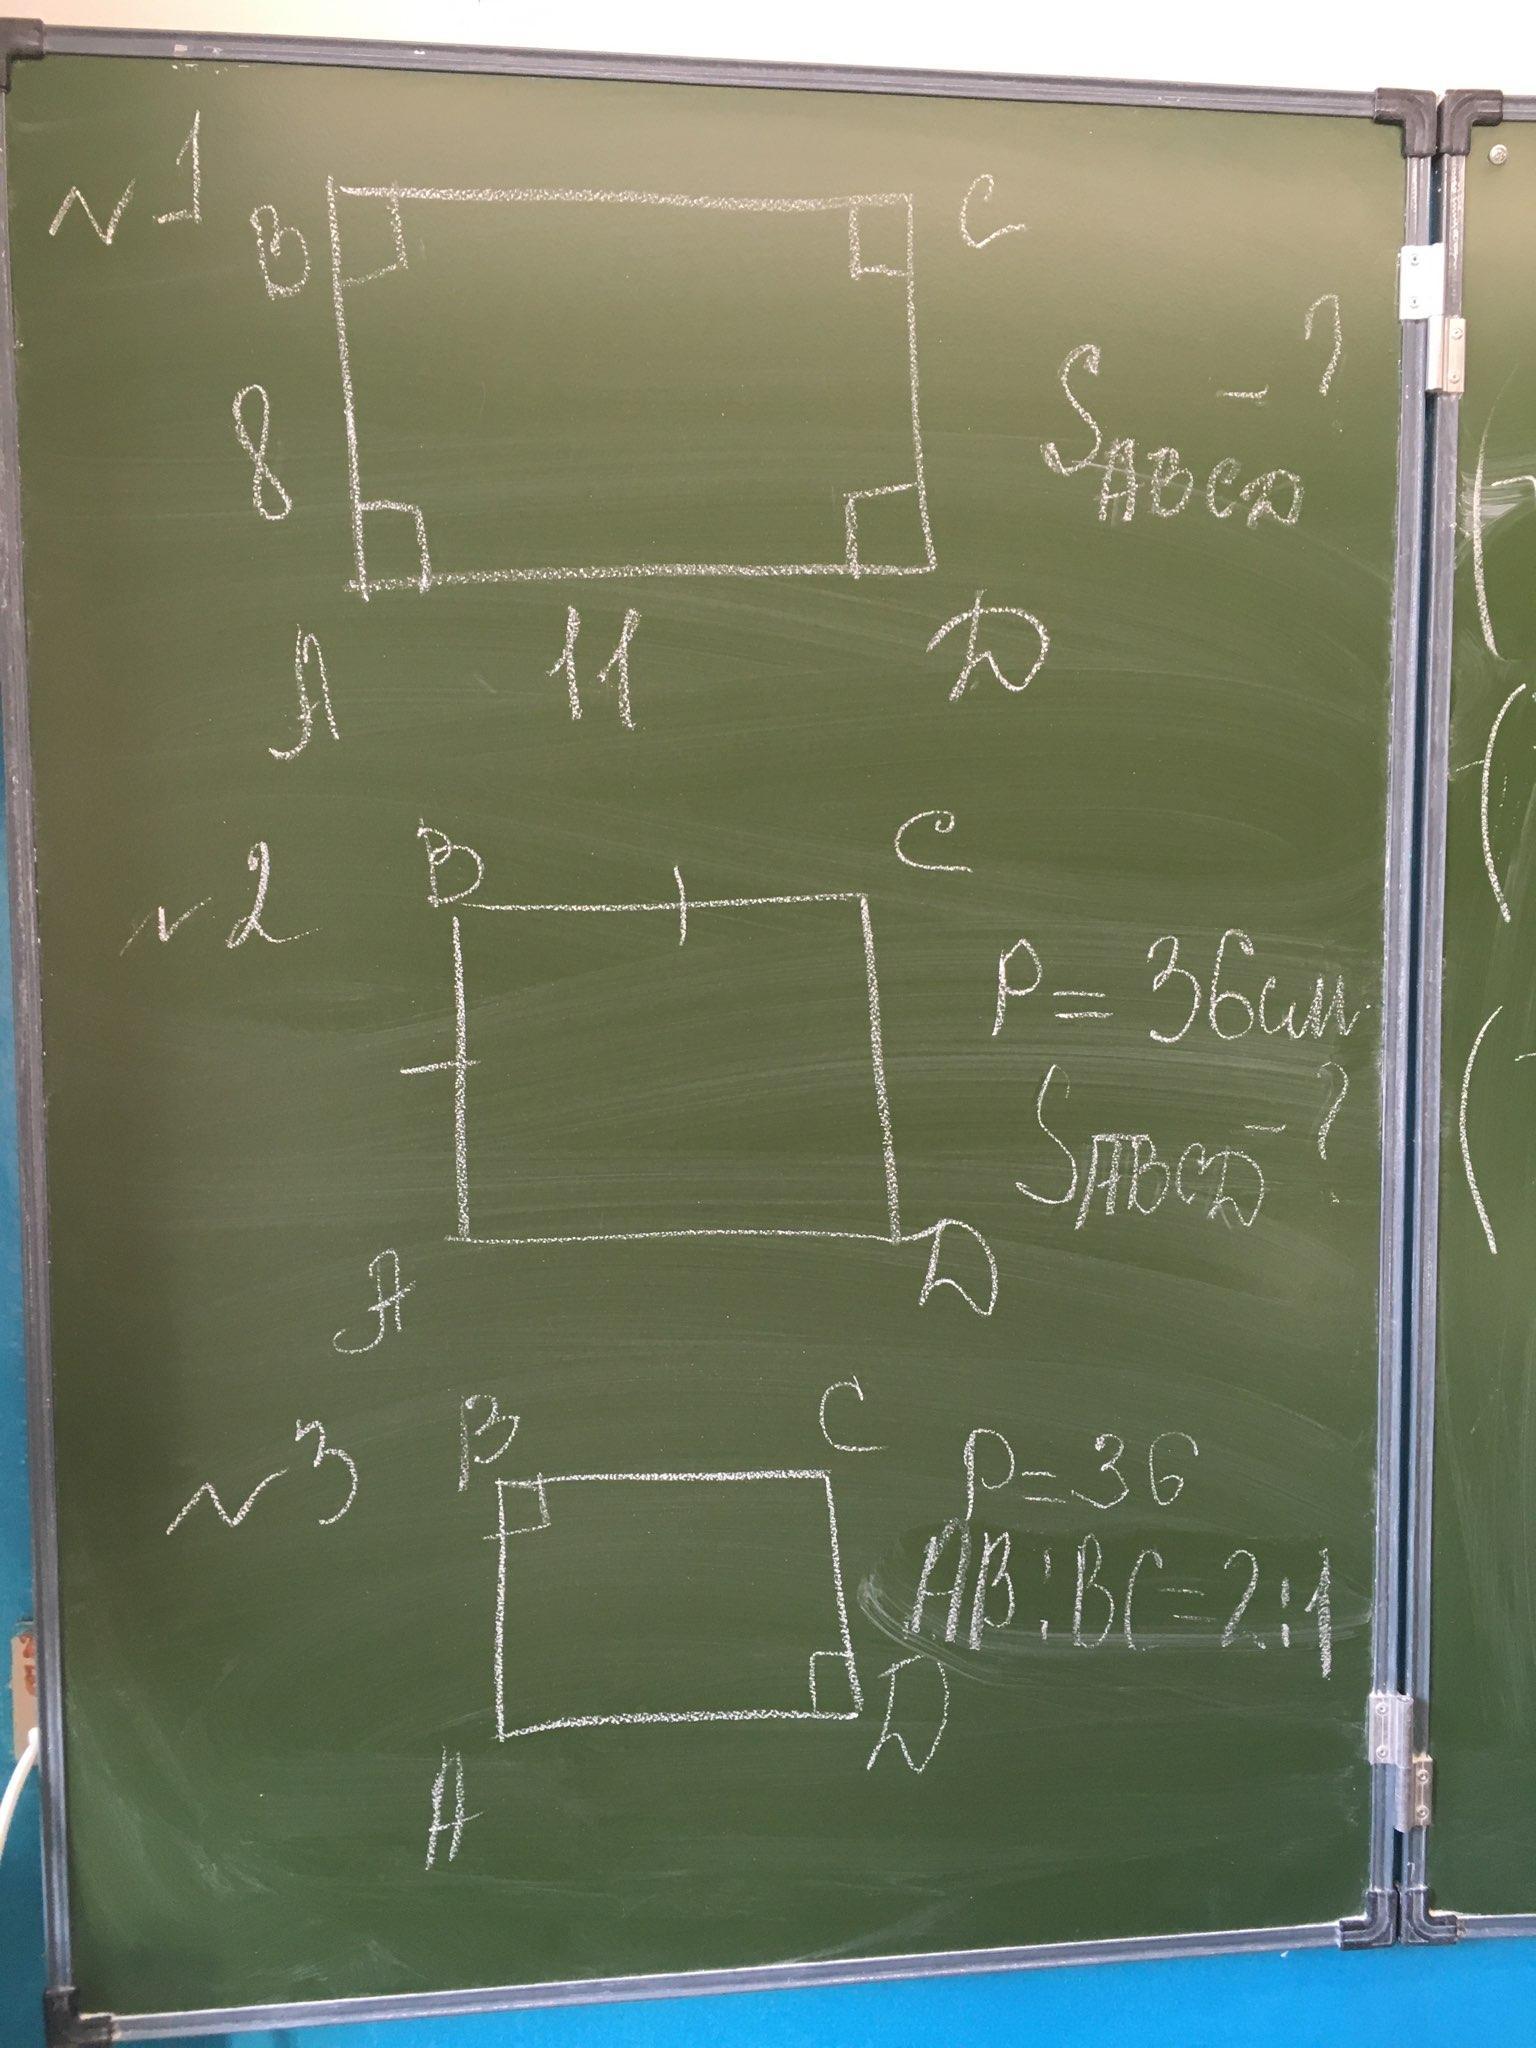 №1
B C
8
S ABCD - ?
A 11 D
№2
B C
P = 36 см
S ABCD - ?
A D
№3
B C
P = 36
AB : BC = 2 : 1
A D